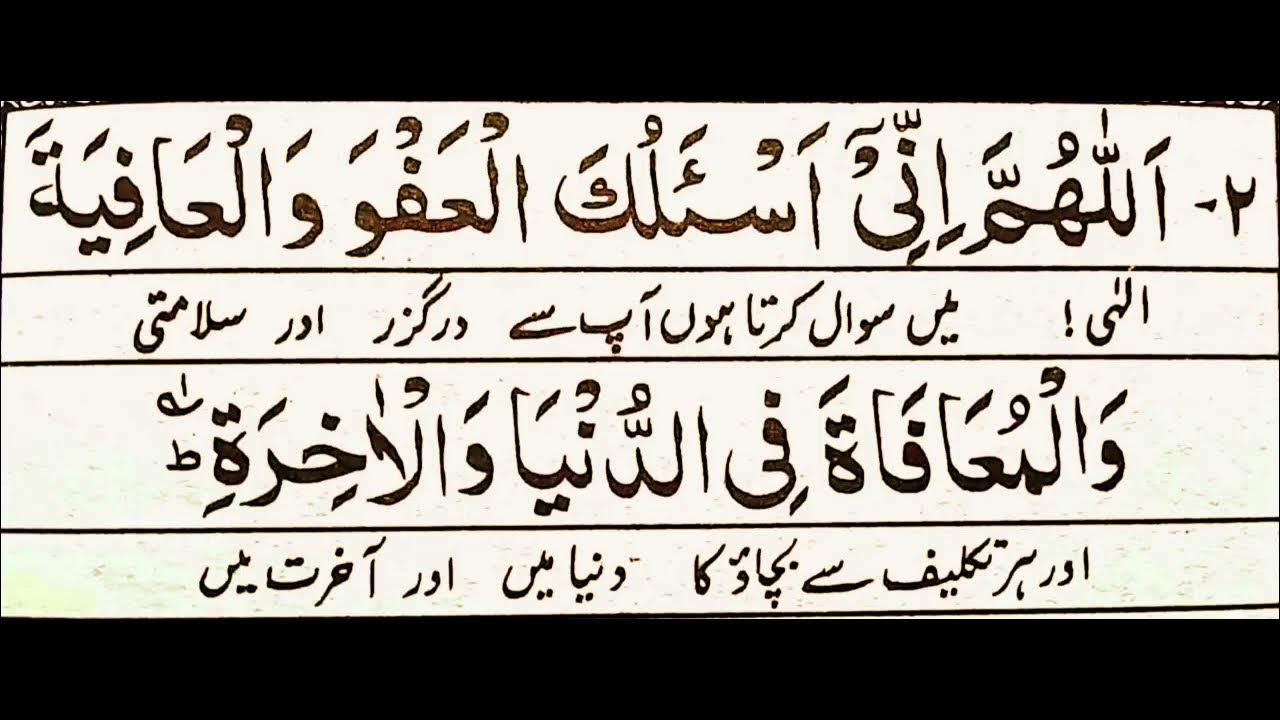 ۲- اَللّٰهُمَّ اِنِّیْٓ اَسْئَلُكَ الْعَفْوَ وَالْعَافِیَةَ
الٰہی! میں سوال کرتا ہوں آپ سے درگزر اور سلامتی
وَالْمُعَافَاةَ فِی الدُّنْیَا وَالْاٰخِرَةِ ط
اور ہر تکلیف سے بچاؤ کا دنیا میں اور آخرت میں